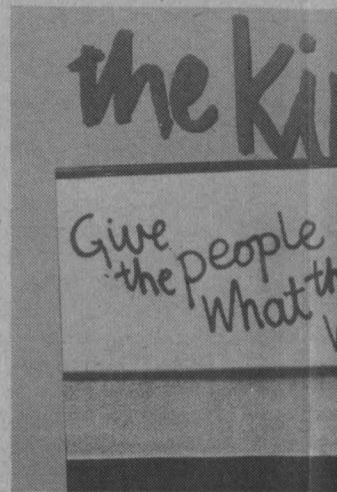 the Ki
Give
the people
What th